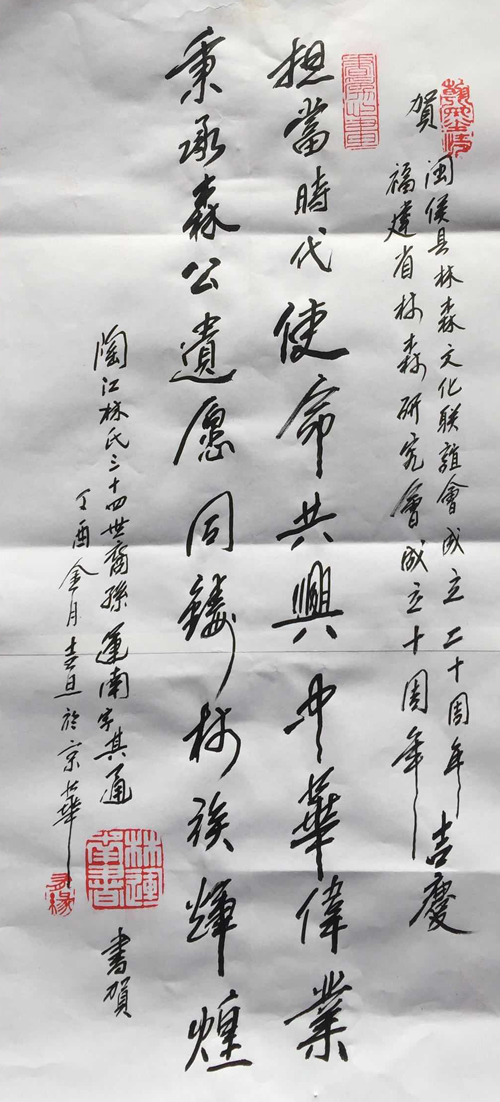 賀
闽侯县林森文化联誼會成立二十周年
福建省林森研究會成立十周年
吉慶
担當時代使命共興中華偉業
秉承森公遺愿同鑄林族輝煌
陶江林氏三十四世裔孫運南字其通
書賀
丁酉金月吉旦於京華
林運南書